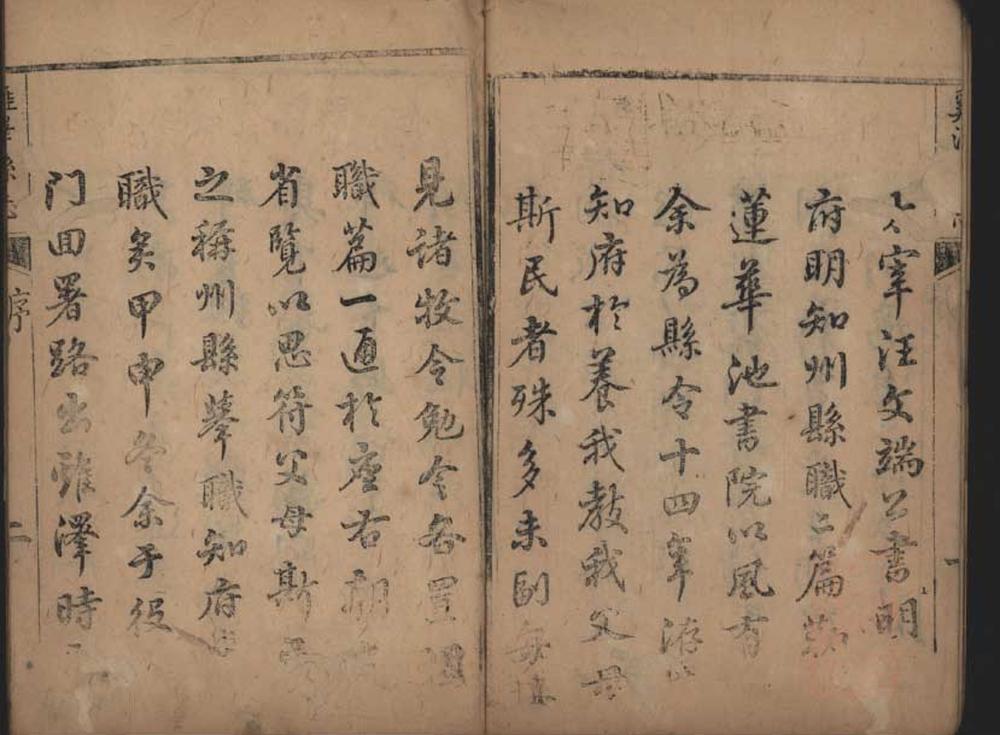 宰汪文端公書明
府明知州縣職二篇
蓮華池書院以風有
余為縣令十四年
知府於養我教我父母
斯民者殊多未副每
見諸牧令勉令各置
職篇一通於座右朝
省覽以思符父母斯
之稱州縣舉職知府
職矣甲申冬余于役
门回署路出雖澤時
序
二